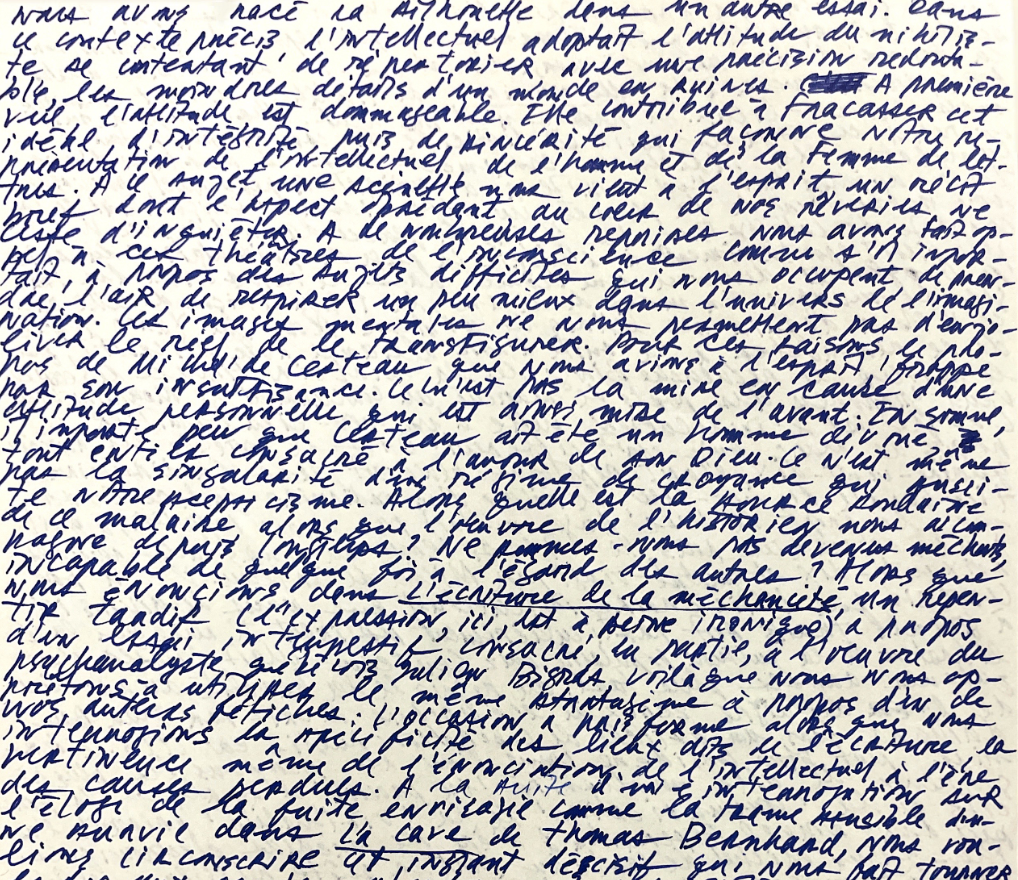 nous avons tracé la silhouette dans un autre essai. Dans
ce contexte précis l'intellectuel adoptait l'attitude du nihilis-
te se contentant de répertorier avec une précision redouta-
ble les moindres détails d'un monde en ruines. A première
vue l'attitude est dommageable. Elle contribue à fracasser cet
idéal d'intégrité puis de sincérité qui façonne notre re-
présentation de l'intellectuel, de l'homme et de la femme de let-
tres. A ce sujet une scénette nous vient à l'esprit, un récit
bref dont l'aspect obsédant au coeur de nos rêveries ne
cesse d'inquiéter. A de nombreuses reprises nous avons fait ap-
pel à ces théâtres de l'inconscience comme s'il impor-
tait, à propos des sujets difficiles qui nous occupent de pren-
dre l'air de respirer un peu mieux dans l'univers de l'imagi-
nation. Les images mentales ne nous permettent pas d'enjo-
liver le réel, de le transfigurer. Pour ces raisons le pro-
pos de Michel de Certeau que nous avions à l'esprit, frappe
par son insuffisance. Ce n'est pas la mise en cause d'une
attitude personnelle qui est ainsi mise de l'avant. En somme,
il importe peu que Certeau ait été un homme divisé,
tout entier consacré à l'amour de son Dieu. Ce n'est même
pas la singularité d'un régime de croyance qui susci-
te notre scepticisme. Alors quelle est la source soudaine
de ce malaise alors que l'oeuvre de l'historien nous accom-
pagne depuis longtemps? Ne sommes-nous pas devenus méchants,
incapable de quelque foi à l'égard des autres? Alors que
nous énoncions dans L'écriture de la méchanceté, un repen-
tir tardif (l'expression, ici, est à peine ironique) à propos
d'un essai intempestif consacré, en partie, à l'oeuvre du
psychanalyste québécois Julien Bigras voilà que nous nous ap-
prêtons à utiliser le même stratagème à propos d'un de
nos auteurs fétiches. L'occasion a pris forme alors que nous
interrogions la spécificité des lieux dits de l'écriture la
pertinence même de l'énonciation de l'intellectuel à l'ère
des causes perdues. A la suite d'une interrogation sur
l'éloge de la fuite envisagée comme la trame sensible d'u-
ne survie dans La cave de Thomas Bernhard, nous vou-
lions circonscrire cet instant décisif qui nous fait tourner